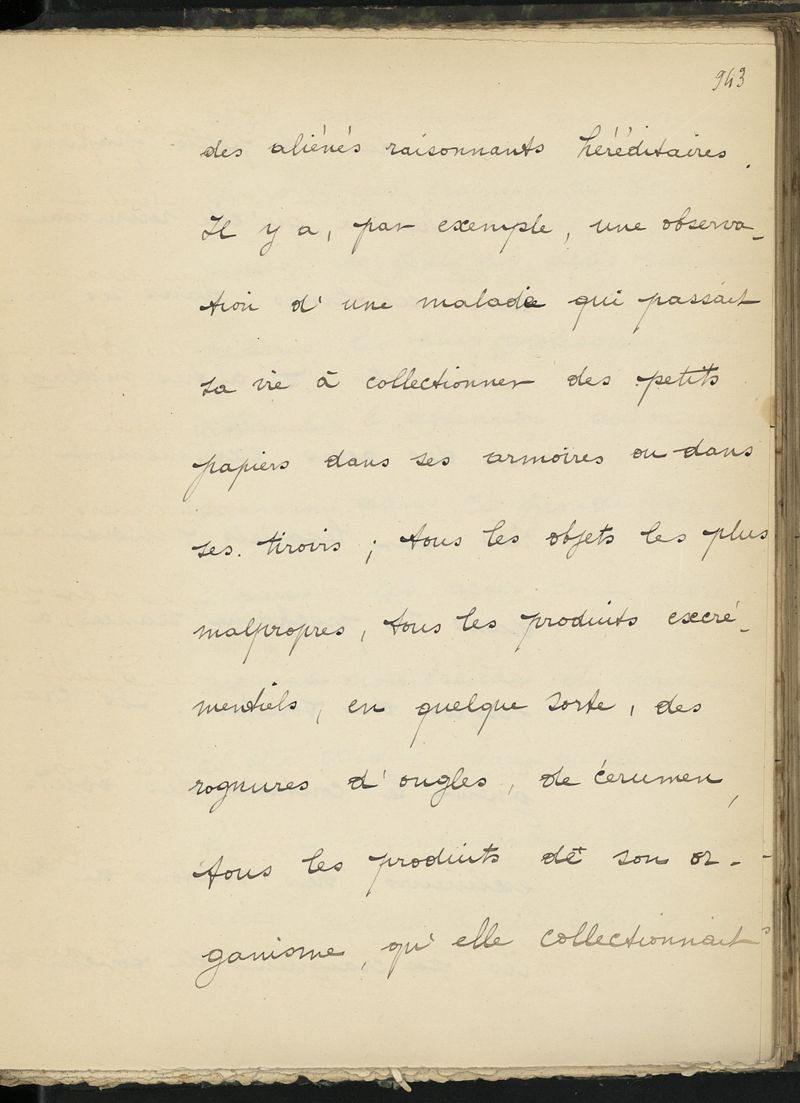 943
des aliénés raisonnants héréditaires.
Il y a, par exemple, une observa-
tion d'une malade qui passait
sa vie à collectionner des petits
papiers dans ses armoires ou dans
ses tiroirs ; tous les objets les plus
malpropres, tous les produits excré-
mentiels, en quelque sorte, des
rognures d'ongles, de cérumen,
tous les produits de son or-
ganisme, qu'elle collectionnait